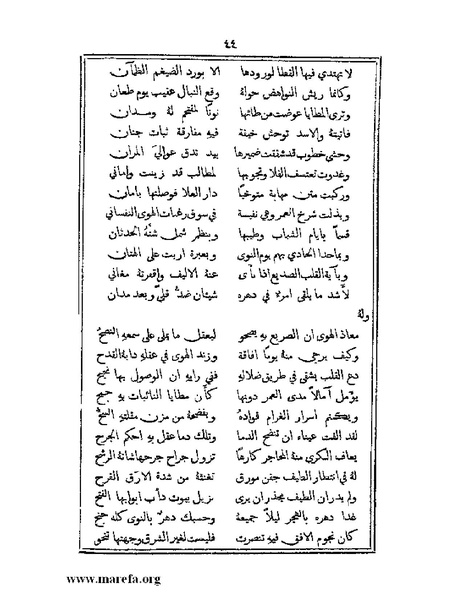 ٤٤
لا يهتدي فيها القطا لورودها الا بورد الضيغم الظمآن
وكانما ريش النواهض حولهُ وقع النبال عقيب يوم طعان
وترى المطايا عوضت من
فاتيتهُ والاسد توحش خيفة فيهِ مفارقة ثبات جنان
وحشى خطوب قد شققت ضميرها بيد تدق عوالي المران
وغدوت تعتسف الفلا وتجوبها لمطالب قد زينت واماني
وركبت متن مهابة متوخيا دار العلا فوصلتها بامان
وبذلت شرخ العمر وهي نفيسة في سوق رغمات الهوى النفساني
قسما بايام الشباب وطيبها وبنظر شمل شتهُ الحدثان
وبما حدا الحادي بهم يوم النوى وبعبرة اربت على الهتان
القلب الصديع اذا نأى عنهُ الاليف واقفرتهُ مغاني
لأشد ما يلقى امرء في دهره شيئان ضد قلى وبعد مدان
ولهُ
معاذ الهوى ان الصريع بهِ يصحو ليعقل ما يملى على سمعهِ النصحُ
وكيف يرجى منهُ يوما افاقة وزند الهوى في عقلهِ دابهُ القدح
دع القلب يشقى في طريق ضلاله ففي رايهِ ان الوصول بها نجح
يؤمل آمالاً مدى العمر دونها كأن مطايا النائبات بهِ جمح
ويكتم اسرار الغرام فؤادهُ ويفضحهُ من مزن مقلتهِ السحُّ
لقد الفت عيناه ان تنضح الدما وتلك دما عقل بهِ احكم الجرح
يعاف الكرى منهُ المحاجر كارها تزول جراح جرحها شانهُ الرشح
لهُ في انتظار الطيف جفن مورق تغنتهُ من شدة الارق القرح
ولم يدر ان الطيف يحذر ان يرى نزيل بيوت دأب ابوابها الفتح
غدا دهره بالهجر ليلاً جميعهُ وحسبك دهرٌ بالنوى كله جنح
كان نجوم الافق فيهِ تنصرت فليست لغير الشرق وجهتها تنحو
www.marefa.org